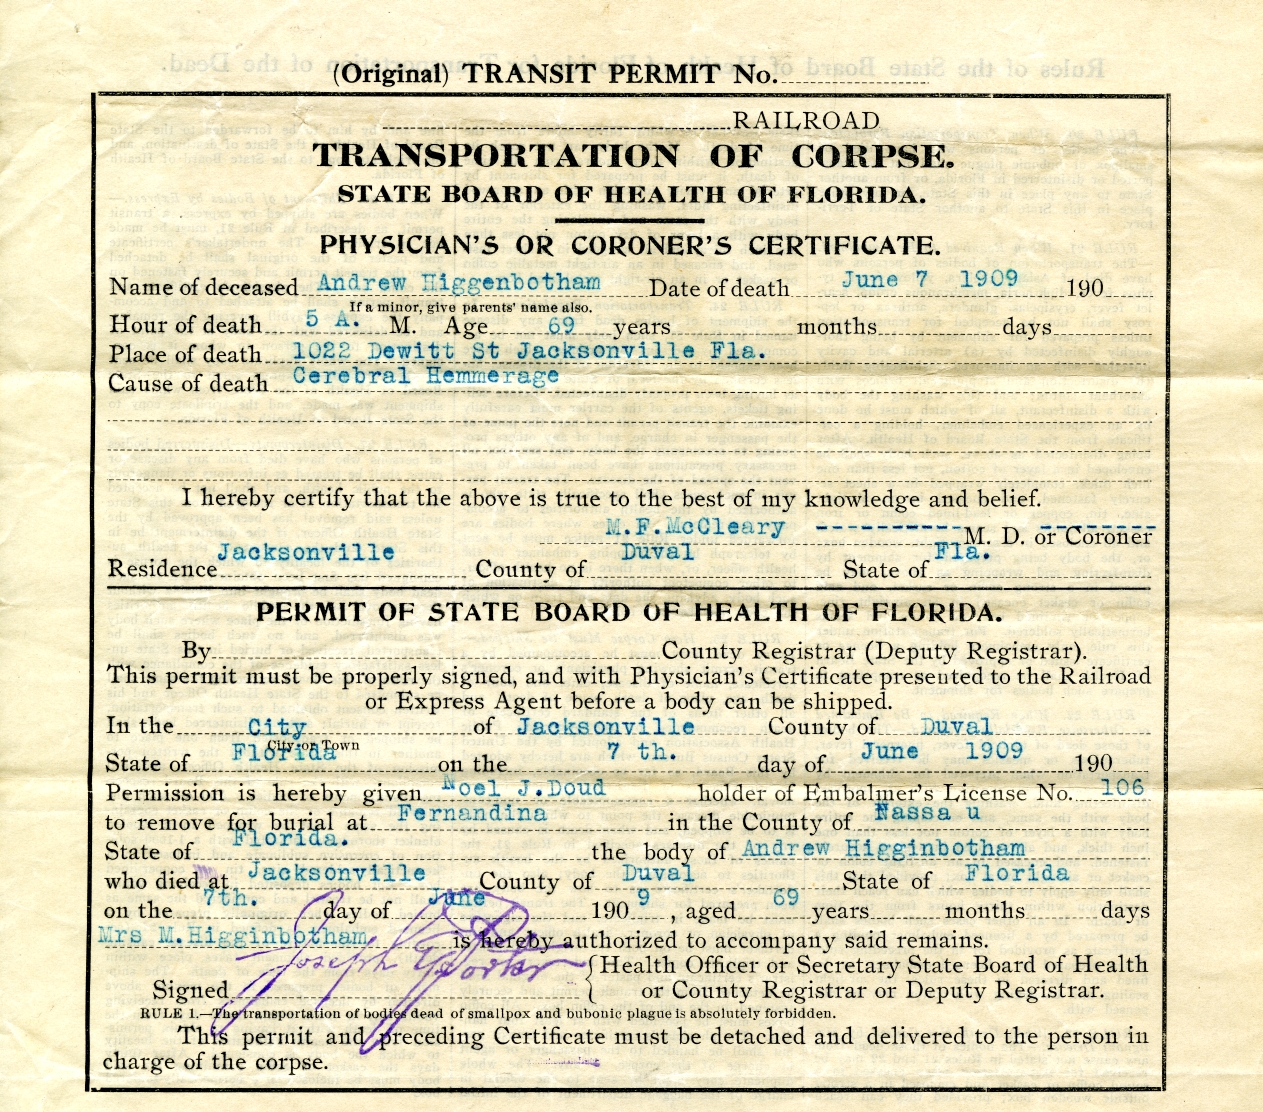 (Original) TRANSIT PERMIT No.
RAILROAD
TRANSPORTATION OF CORPSE.
STATE BOARD OF HEALTH OF FLORIDA.
PHYSICIAN'S OR CORONER'S CERTIFICATE.
Name of deceased Andrew Higgenbotham Date of death June 7 1909 190
If a minor, give parents' name also.
Hour of death 5 A. M. Age 69 years months days
Place of death 1022 Dewitt St Jacksonville Fla.
Cause of death Cerebral Hemmerage
I hereby certify that the above is true to the best of my knowledge and belief.
M.F.McCleary ------------ M. D. or Coroner
Residence Jacksonville County of Duval State of Fla.
PERMIT OF STATE BOARD OF HEALTH OF FLORIDA.
By County Registrar (Deputy Registrar).
This permit must be properly signed, and with Physician's Certificate presented to the Railroad
or Express Agent before a body can be shipped.
In the City of Jacksonville County of Duval
City or Town
State of Florida on the 7 th. day of June 1909 190
Permission is hereby given Noel J.Doud holder of Embalmer's License No. 106
to remove for burial at Fernandina in the County of Nassa u
State of Florida. the body of Andrew Higginbotham
who died at Jacksonville County of Duval State of Florida
on the 7th. day of June 190 9, aged 69 years months days
Mrs M.Higginbotham is hereby authorized to accompany said remains.
Signed Joseph Y Porter { Health Officer or Secretary State Board of Health
or County Registrar or Deputy Registrar.
RULE 1.—The transportation of bodies dead of smallpox and bubonic plague is absolutely forbidden.
This permit and preceding Certificate must be detached and delivered to the person in
charge of the corpse.